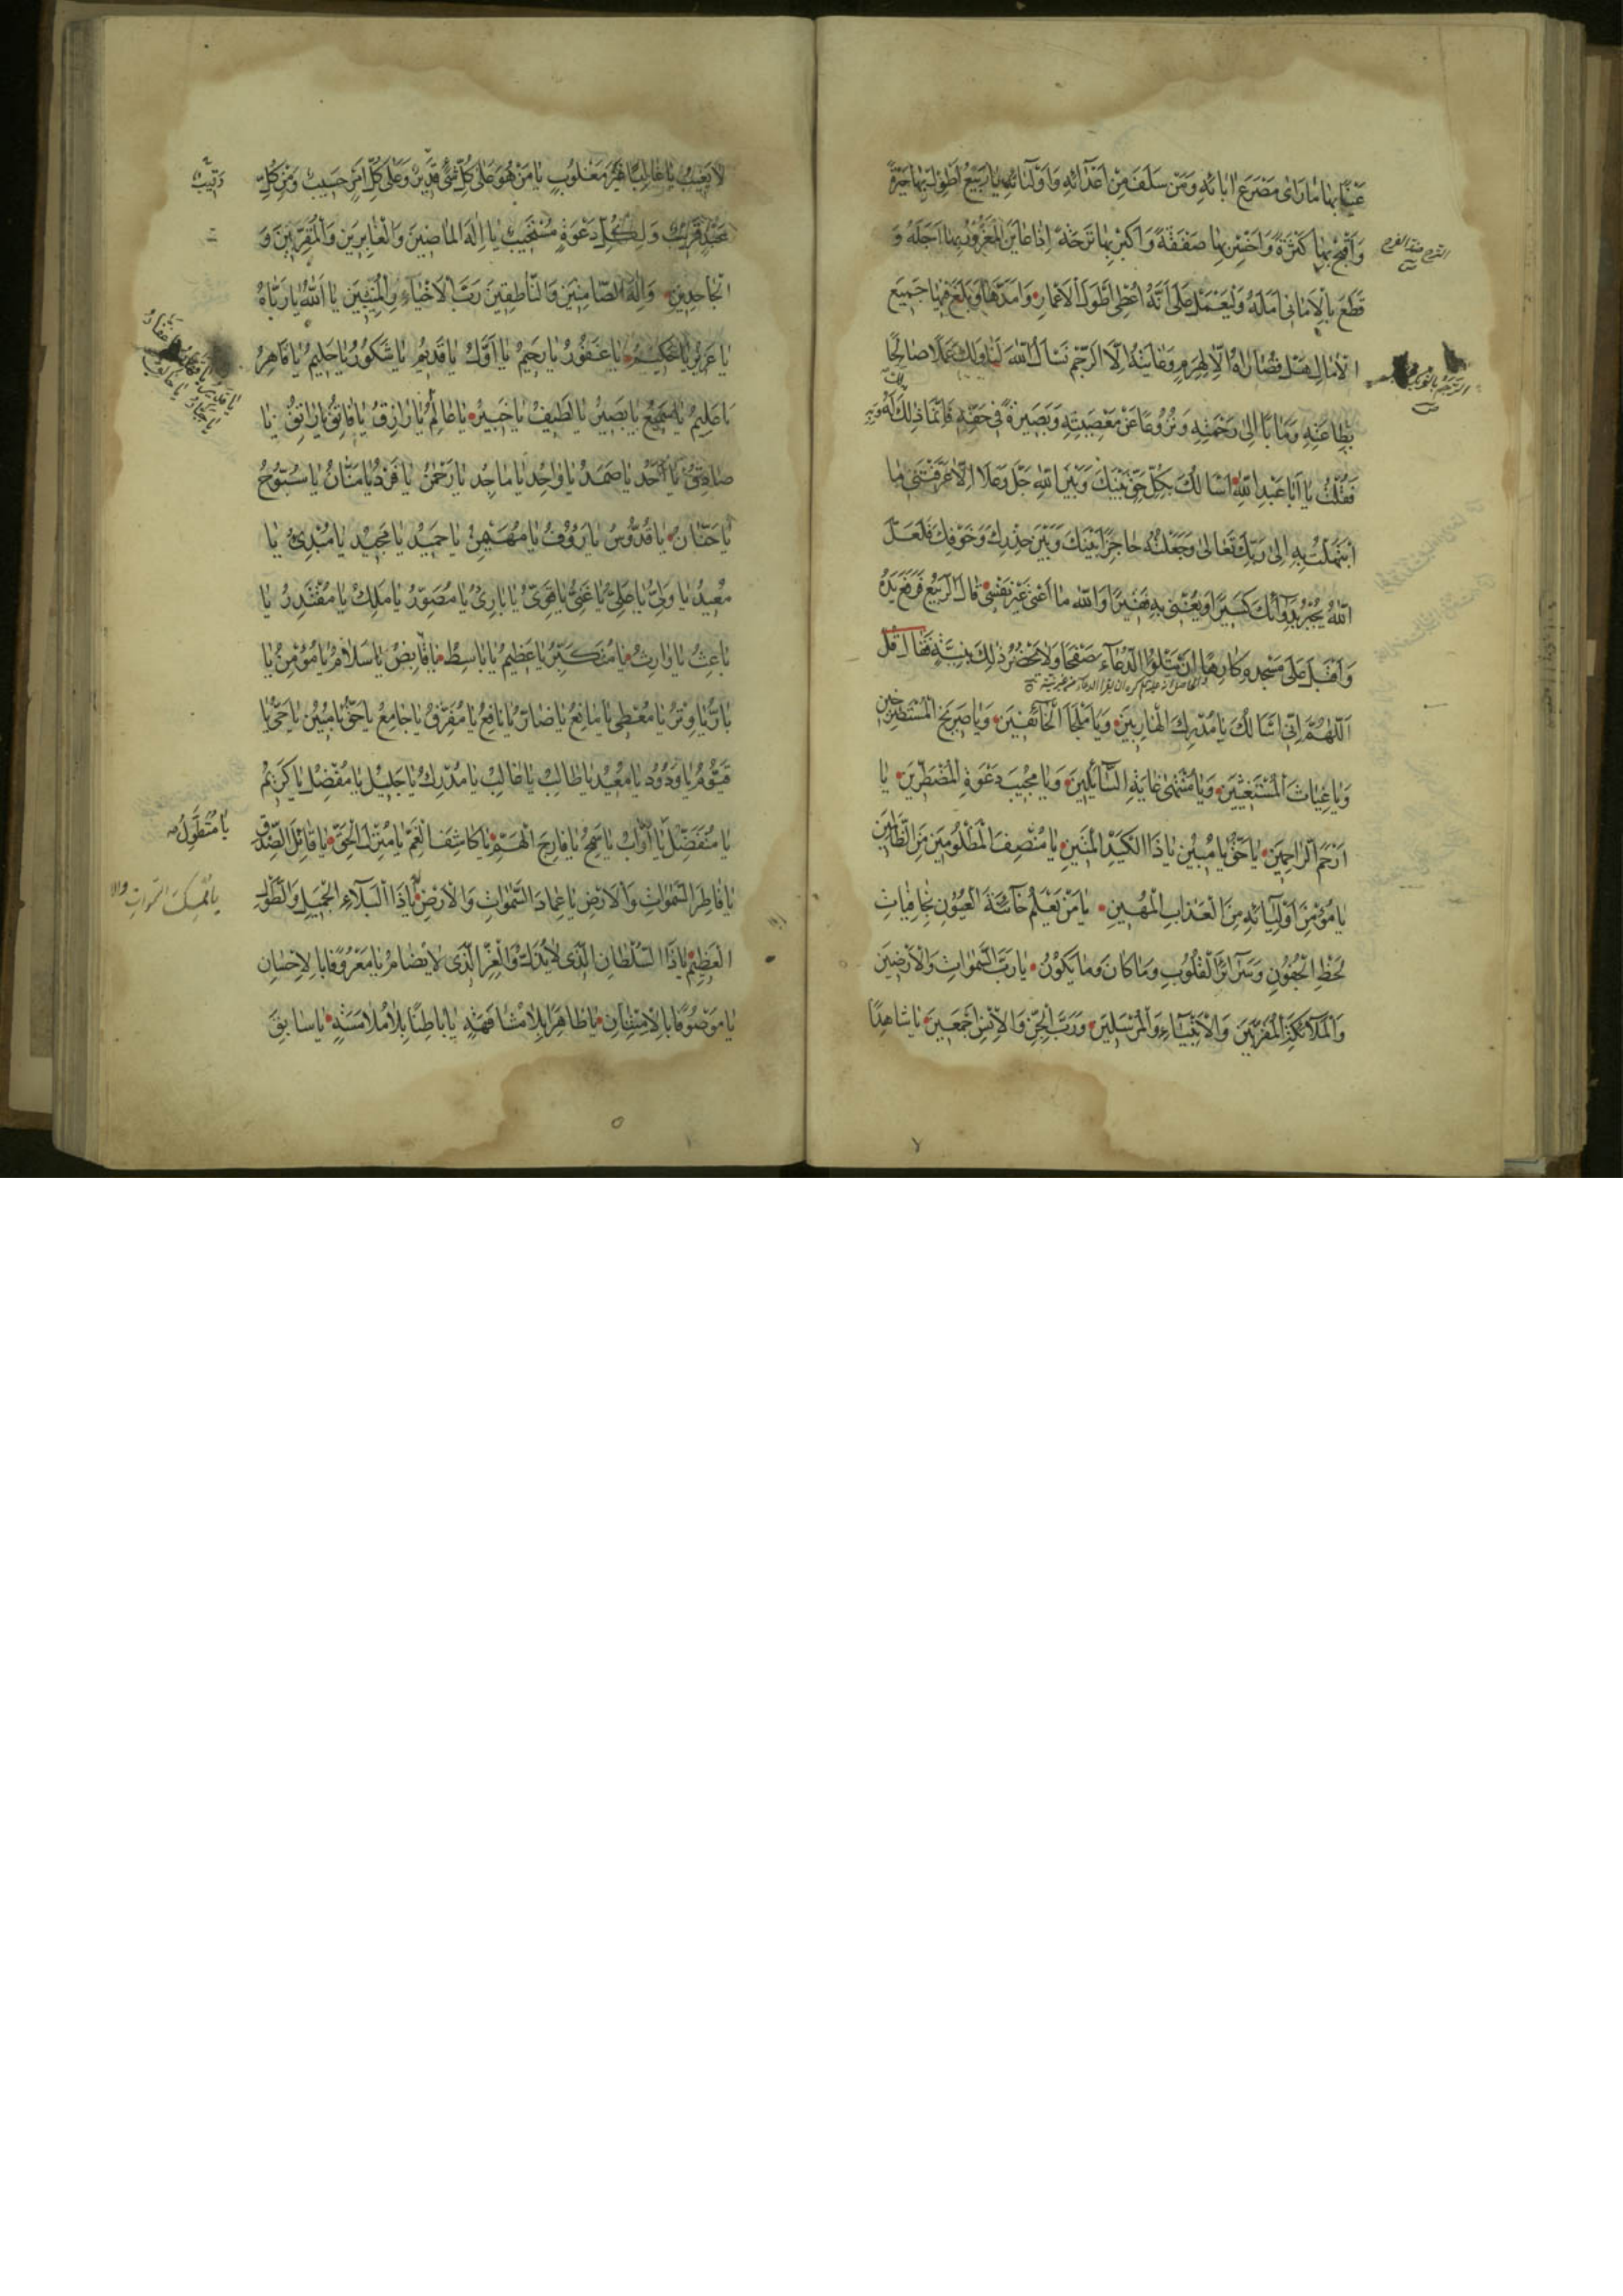 عَنْهَا بِهَا مَا رَاى مَصْرَعَ اٰبَائِهِ وَمَنْ سَلَفَ مِنْ اَعْدَآئِهِ وَاَوْلِيَائِهِ يَا رَبِيعُ اَطْوِلْ بِهَا حَيْرَةً
وَاَقْبِحْ بِهَا كَثْرَةً وَاَخْسِرْ بِهَا صَفْقَةً وَاَكْبِرْ بِهَا تَرْحَةً اِذَا عَايَنَ الْمَغْرُورُ بِهَا اَجَلَهُ وَ
قَطَعَ بِالْاَمَانِى اَمَلَهُ وَلْيَعْمَلْ عَلٰى اَنَّهُ اُعْطِىَ اَطْوَلَ الْاَعْمَارِ وَاَمَدَّهَا وَبَلَغَ فِيهَا جَمِيعَ
الْاٰمَالِ هَلْ قُصَارَاهُ اِلَّا الْهَرَمُ وَغَايَتُهُ اِلَّا الرَّخَمُ نَسْاَلُ اللّٰهَ لَنَا وَلَكَ عَمَلًا صَالِحًا
بِطَاعَتِهِ وَمَاٰبًا اِلٰى رَحْمَتِهِ وَنُزُوعًا عَنْ مَعْصِيَتِهِ وَبَصِيرَةً فِى حَقِّهِ فَاِنَّمَا ذٰلِكَ لَهُ وَبِهِ
فَقُلْتُ يَا اَبَا عَبْدِ اللّٰهِ اَسْاَلُكَ بِكُلِّ حَقٍّ بَيْنَكَ وَبَيْنَ اللّٰهِ جَلَّ وَعَلَا اِلَّا عَرَّفْتَنِى مَا
ابْتَهَلْتَ بِهِ اِلٰى رَبِّكَ تَعَالٰى وَجَعَلْتَهُ حَاجِزًا بَيْنَكَ وَبَيْنَ حِذْرِكَ وَخَوْفِكَ فَلَعَلَّ
اللّٰهَ يَجْبُرُ بِدَوَائِكَ كَسِيرًا وَيُغْنِى بِهِ فَقِيرًا وَاللّٰهِ مَا اَعْنِى غَيْرَ نَفْسِى قَالَ الرَّبِيعُ فَرَفَعَ يَدَهُ
وَاَقْبَلَ عَلٰى مَسْجِدِهِ كَارِهًا اَنْ يَتْلُوَ الدُّعَآءَ صَفْحًا وَلَا يَحْضُرَ ذٰلِكَ بِنِيَّةٍ فَقَالَ قُلْ
اَللّٰهُمَّ اِنِّى اَسْاَلُكَ يَا مُدْرِكَ الْهَارِبِينَ وَيَا مَلْجَاَ الْخَآئِفِينَ وَيَا صَرِيخَ الْمُسْتَصْرِخِينَ
وَيَا غِيَاثَ الْمُسْتَغِيثِينَ وَيَا مُنْتَهٰى غَايَةِ السَّآئِلِينَ وَيَا مُجِيبَ دَعْوَةِ الْمُضْطَرِّينَ يَا
اَرْحَمَ الرَّاحِمِينَ يَا حَقُّ يَا مُبِينُ يَا ذَا الْكَيْدِ الْمَتِينِ يَا مُنْصِفَ الْمَظْلُومِينَ مِنَ الظَّالِمِينَ
يَا مُؤْمِنَ اَوْلِيَآئِهِ مِنَ الْعَذَابِ الْمُهِينِ يَا مَنْ يَعْلَمُ خَآئِنَةَ الْعُيُونِ بِخَافِيَاتِ
لَحْظِ الْجُفُونِ وَسَرَآئِرَ الْقُلُوبِ وَمَا كَانَ وَمَا يَكُونُ يَا رَبَّ السَّمٰوَاتِ وَالْاَرَضِينَ
وَالْمَلَآئِكَةِ الْمُقَرَّبِينَ وَالْاَنْبِيَآءِ وَالْمُرْسَلِينَ وَرَبَّ الْجِنِّ وَالْاِنْسِ اَجْمَعِينَ يَا شَاهِدًا
لَا يَغِيبُ يَا غَالِبًا غَيْرَ مَغْلُوبٍ يَا مَنْ هُوَ عَلٰى كُلِّ شَىْءٍ قَدِيرٌ وَعَلٰى كُلِّ اَمْرٍ حَسِيبٌ وَمِنْ كُلِّ
عَبْدٍ قَرِيبٌ وَلِكُلِّ دَعْوَةٍ مُسْتَجِيبٌ يَا اِلٰهَ الْمَاضِينَ وَالْغَابِرِينَ وَالْمُقَرِّبِينَ وَ
الْجَاحِدِينَ وَاِلٰهَ الصَّامِتِينَ وَالنَّاطِقِينَ رَبَّ الْاَحْيَآءِ وَالْمَيِّتِينَ يَا اَللّٰهُ يَا رَبَّاهُ
يَا عَزِيزُ يَا حَكِيمُ يَا غَفُورُ يَا رَحِيمُ يَا اَوَّلُ يَا قَدِيمُ يَا شَكُورُ يَا حَلِيمُ يَا قَاهِرُ
يَا عَلِيمُ يَا سَمِيعُ يَا بَصِيرُ يَا لَطِيفُ يَا خَبِيرُ يَا عَالِمُ يَا رَازِقُ يَا فَاتِقُ يَا رَاتِقُ يَا
صَادِقُ يَا اَحَدُ يَا صَمَدُ يَا وَاحِدُ يَا مَاجِدُ يَا رَحْمٰنُ يَا فَرْدُ يَا مَنَّانُ يَا سُبُّوحُ
يَا حَنَّانُ يَا قُدُّوسُ يَا رَؤُوفُ يَا مُهَيْمِنُ يَا حَمِيدُ يَا مَجِيدُ يَا مُبْدِئُ يَا
مُعِيدُ يَا وَلِىُّ يَا عَلِىُّ يَا غَنِىُّ يَا قَوِىُّ يَا بَارِئُ يَا مُصَوِّرُ يَا مَلِكُ يَا مُقْتَدِرُ يَا
بَاعِثُ يَا وَارِثُ يَا مُتَكَبِّرُ يَا عَظِيمُ يَا بَاسِطُ يَا قَابِضُ يَا سَلَامُ يَا مُؤْمِنُ يَا
بَارُّ يَا وِتْرُ يَا مُعْطِى يَا مَانِعُ يَا ضَارُّ يَا نَافِعُ يَا مُفَرِّقُ يَا جَامِعُ يَا حَقُّ يَا مُبِينُ يَا حَىُّ يَا
قَيُّومُ يَا وَدُودُ يَا مُعِيدُ يَا طَالِبُ يَا غَالِبُ يَا مُدْرِكُ يَا جَلِيلُ يَا مُفْضِلُ يَا كَرِيمُ
يَا مُتَفَضِّلُ يَا اَوَّابُ يَا سَمِحُ يَا فَارِجَ الْهَمِّ يَا كَاشِفَ الْغَمِّ يَا مُنْزِلَ الْحَقِّ يَا قَائِلَ الصِّدْقِ
يَا مُتَطَوِّلُ
يَا فَاطِرَ السَّمٰوَاتِ وَالْاَرْضِ يَا عِمَادَ السَّمٰوَاتِ وَالْاَرْضِ يَا ذَا الْبَلَآءِ الْجَمِيلِ وَالطَّوْلِ
يَا مُمْسِكَ السَّمٰوَاتِ وَالا
الْعَظِيمِ يَا ذَا السُّلْطَانِ الَّذِى لَا يَذِلُّ وَالْعِزِّ الَّذِى لَا يُضَامُ يَا مَعْرُوفًا بِالْاِحْسَانِ
يَا مَوْصُوفًا بِالْاِمْتِنَانِ يَا ظَاهِرًا بِلَا مُشَافَهَةٍ يَا بَاطِنًا بِلَا مُلَامَسَةٍ يَا سَابِقَ